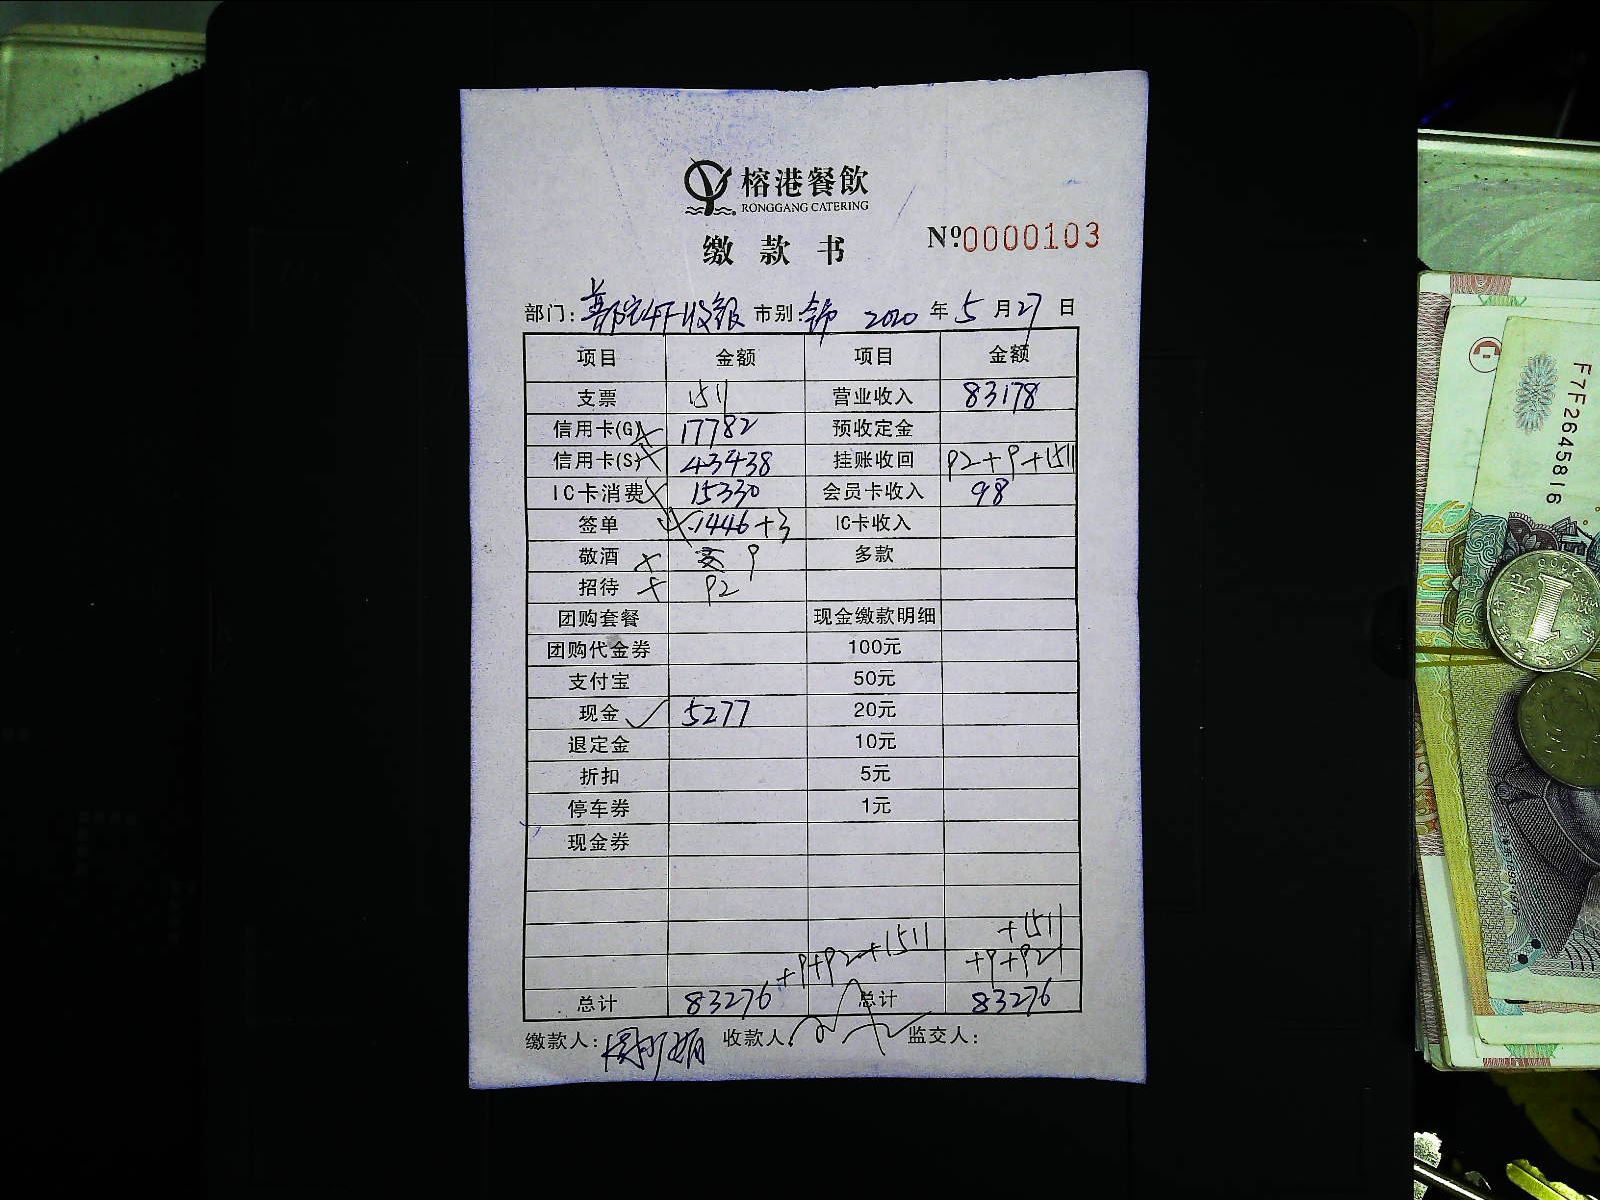 榕港餐飲
RONGGANG CATERING
缴款书 Nº0000103
部门: 收银 市别: 2020年5月27日
项目 金额 项目 金额
支票 1511 营业收入 83178
信用卡(G) 17782 预收定金
信用卡(S) 43438 挂账收回 92+9+1511
IC卡消费 15330 会员卡收入 98
签单 1446+3 IC卡收入
敬酒 9 多款
招待 92
团购套餐 现金缴款明细
团购代金券 100元
支付宝 50元
现金 ✓ 5277 20元
退定金 10元
折扣 5元
停车券 1元
现金券
+9+92+1511 +1511
+9+92
总计 83276 总计 83276
缴款人: 收款人: 监交人:
F7F2645816
1